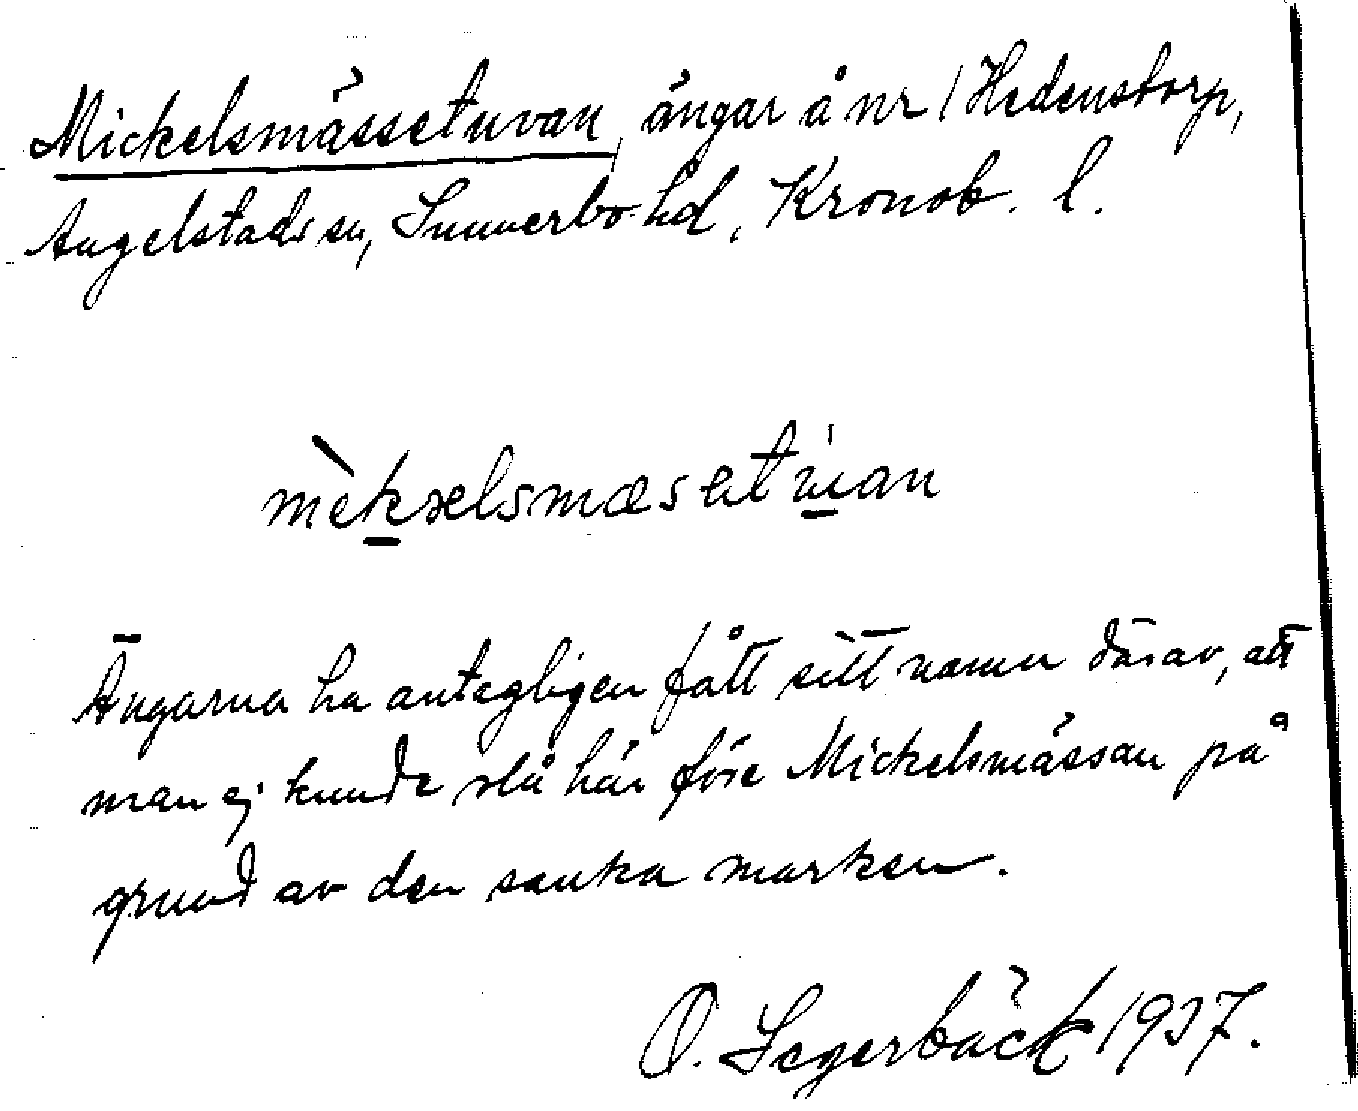 Mickelsmässetuvan, ängar å nr 1 Hedenstorp,
Angelstads sn, Sunnerbo hd, Kronob. l.
Ängarna ha antagligen fått sitt namn därav, att
man ej kunde slå här före Mickelsmässan på
grund av den sanka marken.
O. Segerbäck 1937.